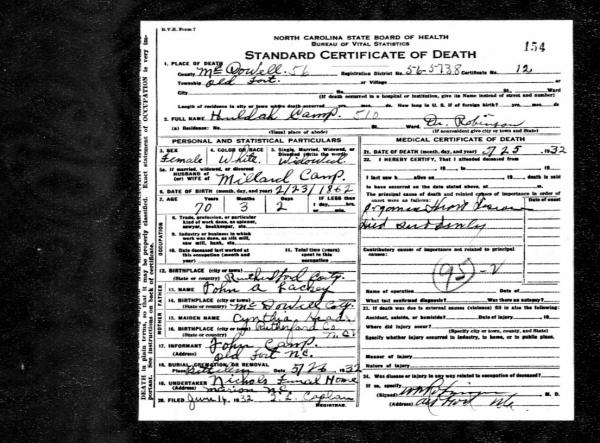 N.V.S. Form 7
NORTH CAROLINA STATE BOARD OF HEALTH
BUREAU OF VITAL STATISTICS
STANDARD CERTIFICATE OF DEATH
154
1. PLACE OF DEATH
County McDowell 56 Registration District No. 56-5738 Certificate No. 12
Township Old Fort. or Village
City No. St. Ward
(If death occurred in a hospital or institution, give its Name instead of street and number)
Length of residence in city or town where death occurred yrs. mos. ds. How long in U. S. if of foreign birth? yrs. mos. ds.
2. FULL NAME Huldah Camp. 510 Dr. Robinson
(a) Residence: No. St. Ward
(Usual place of abode) (If nonresident give city or town and State)
PERSONAL AND STATISTICAL PARTICULARS
3. SEX 4. COLOR OR RACE 5. Single, Married, Widowed, or Divorced (write the word)
Female White Widowed
5a. If married, widowed, or divorced
HUSBAND of
(or) WIFE of Millard Camp.
6. DATE OF BIRTH (month, day, and year) 2/23/1862
7. AGE Years Months Days IF LESS than
70 3 2 1 day, hrs.
or min.
OCCUPATION
8. Trade, profession, or particular
kind of work done, as spinner,
sawyer, bookkeeper, etc.
9. Industry or business in which
work was done, as silk mill,
saw mill, bank, etc.
10. Date deceased last worked at
this occupation (month and
year)
11. Total time (years)
spent in this
occupation
12. BIRTHPLACE (city or town)
(State or country) Rutherford Coty.
FATHER
13. NAME John A Lackey
14. BIRTHPLACE (city or town)
(State or country) McDowell Coty.
MOTHER
15. MAIDEN NAME Cynthia Head
16. BIRTHPLACE (city or town) Rutherford Co.
(State or country) N.C.
17. INFORMANT John Camp.
(Address) Old Fort N.C.
18. BURIAL, CREMATION OR REMOVAL
Place Bethlehem Date 5/26 1932
19. UNDERTAKER Nichols Funeral Home
(Address) Marion N.C.
20. FILED June 14, 1932
REGISTRAR.
MEDICAL CERTIFICATE OF DEATH
21. DATE OF DEATH (month, day, and year) 5/25 1932
22. I HEREBY CERTIFY, That I attended deceased from
, 19 , to , 19
I last saw h alive on , 19 , death is said
to have occurred on the date stated above, at m.
The principal cause of death and related causes of importance in order of
onset were as follows: Date of onset
Organic Heart
Died Suddenly
Contributory causes of importance not related to principal
causes:
95-V
Name of operation Date of
What test confirmed diagnosis? Was there an autopsy?
23. If death was due to external causes (violence) fill in also the following:
Accident, suicide, or homicide? Date of injury 19
Where did injury occur?
(Specify city or town, county, and State)
Specify whether injury occurred in industry, in home, or in public place.
Manner of injury
Nature of injury
24. Was disease or injury in any way related to occupation of deceased?
If so, specify
(Signed) M. D.
(Address) Old Fort N.C.